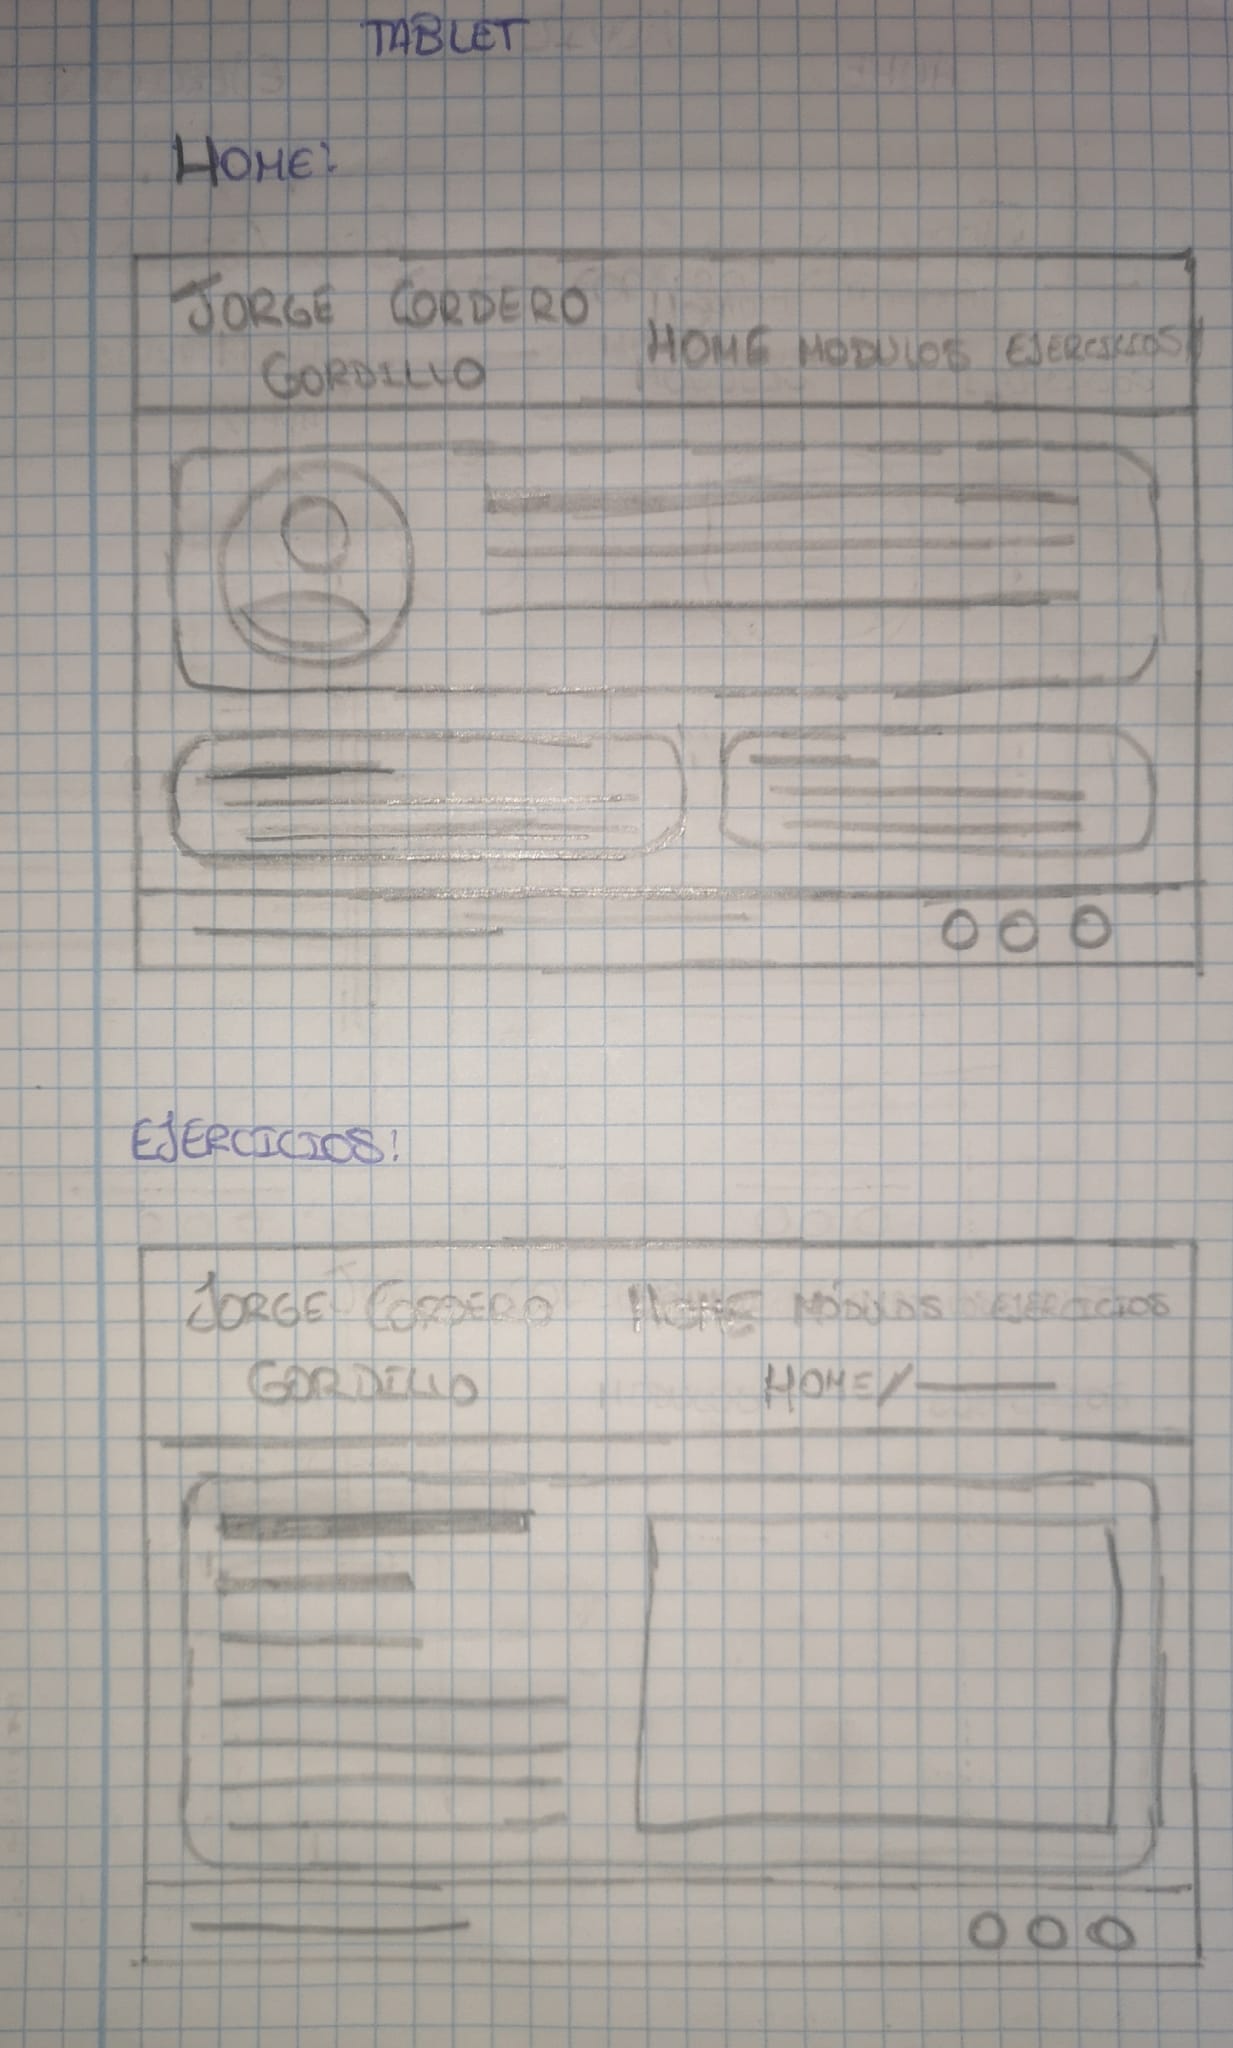 TABLET
HOME:
JORGE CORDERO
GORDILLO
HOME MODULOS EJERCICIOS
EJERCICIOS:
JORGE CORDERO HOME MÓDULOS EJERCICIOS
GORDILLO HOME/